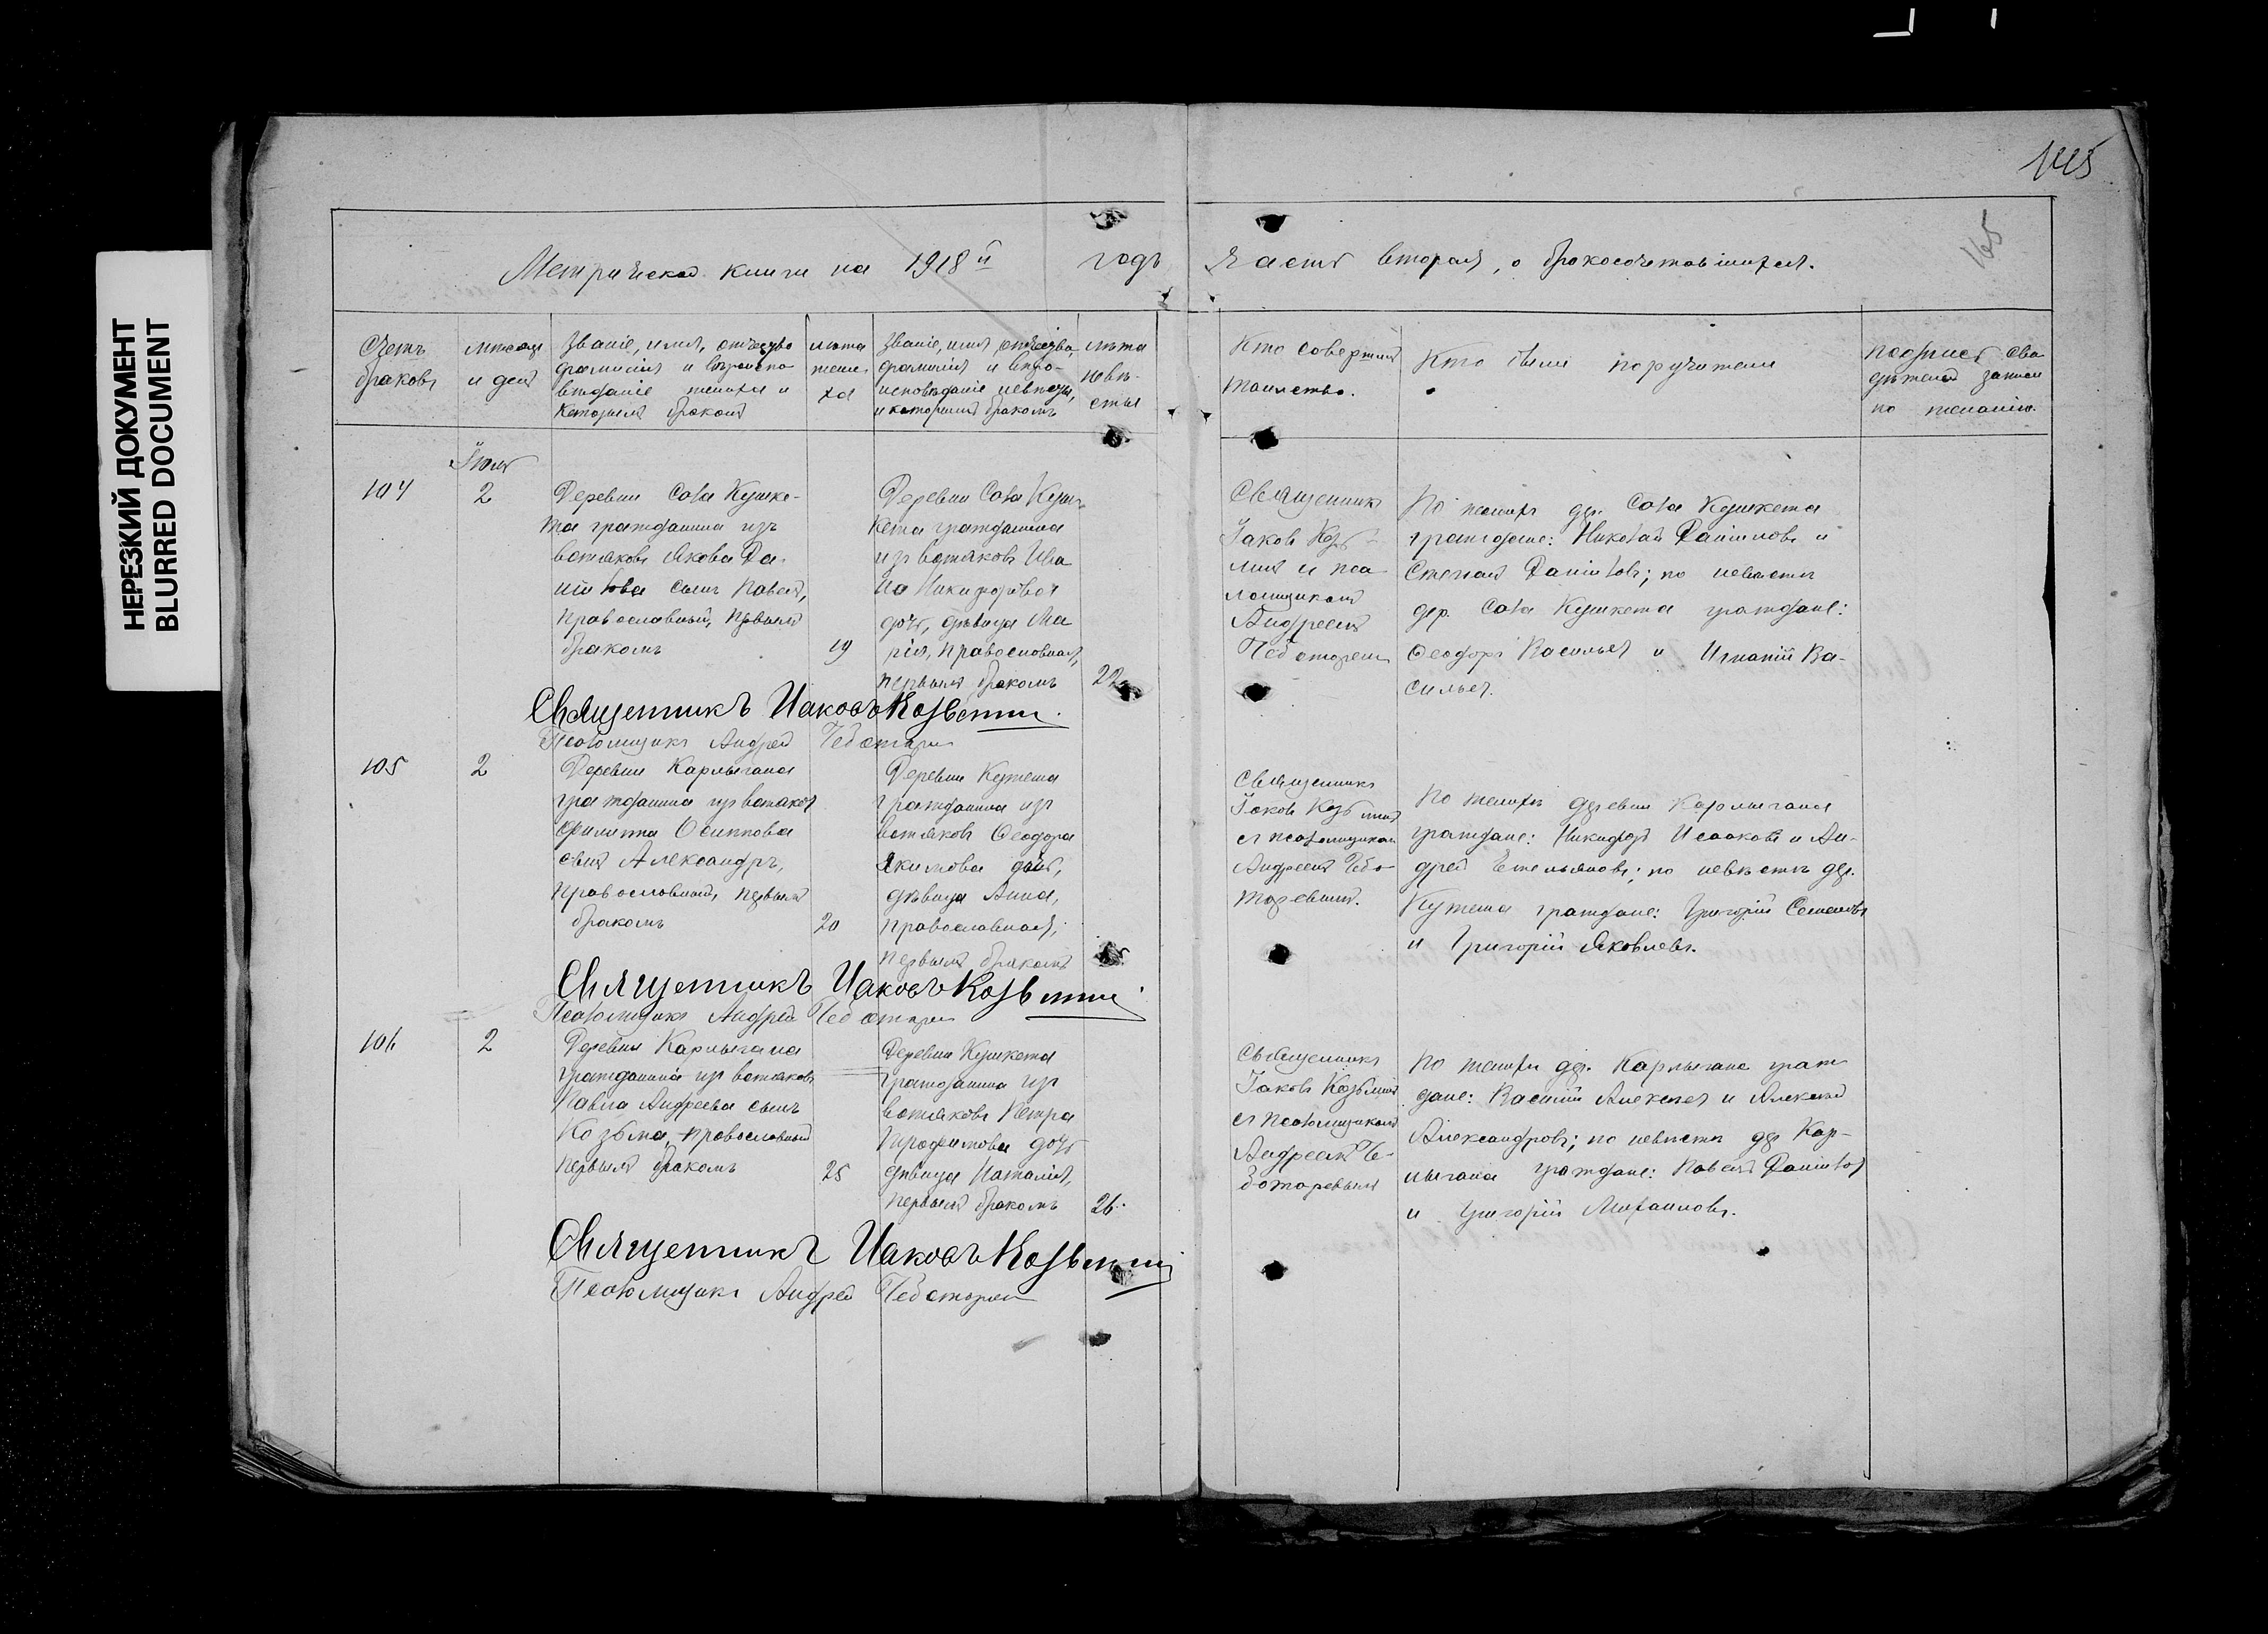 НЕРЕЗКИЙ ДОКУМЕНТ
BLURRED DOCUMENT
145
165
Метрической книги на 1918й годъ Часть вторая, о бракосочетавшихся.
Счетъ
браковъ
мѣсяцъ
и день
Званіе, имя, отчество
фамилія и вѣроиспо-
вѣданіе жениха и
которымъ бракомъ
лѣта
жени
ха
Званіе, имя, отчество,
фамилія и вѣро-
исповѣданіе невѣсты,
и которымъ бракомъ
лѣта
невѣ-
сты
Кто совершилъ
таинство.
Кто были поручители
подпись сви
дѣтелей записи
по желанію.
Іюль
104
2
Деревни Сола Кушке-
та гражданина изъ
вотяковъ Якова Да-
нилова сынъ Павелъ,
православный, первымъ
бракомъ
19
Деревни Сола Куш-
кета гражданина
изъ вотяковъ Ива
на Никифорова
дочь, дѣвица Ма
рія, православная,
первымъ бракомъ
22
Священникъ
Іаковъ Козь-
минъ и пса
ломщикомъ
Андреемъ
Чеботарев
По женихѣ дер. Сола Кушкета
граждане: Николай Даниловъ и
Степанъ Даниловъ; по невѣстѣ
дер. Сола Кушкета граждане:
Ѳеодоръ Васильев и Игнатій Ва-
сильев.
Священникъ Иаковъ Козьмин.
Псаломщикъ Андрей Чеботарев
105
2
Деревни Карлыгана
гражданина изъ вотяков
Филиппа Осиппова
сынъ Александръ,
православный, первымъ
бракомъ
20
Деревни Кужеша
гражданина изъ
вотяковъ Ѳеодора
Якимова дочь,
дѣвица Анна,
православная,
первымъ бракомъ
Священникъ
Іаковъ Козьминъ
съ псаломщикомъ
Андреемъ Чебо-
таревымъ.
По женихѣ деревни Карлыгана
граждане: Никифоръ Исааковъ и Ан-
дрей Емельяновъ; по невѣстѣ дер.
Кужеша граждане: Григорій Семеновъ
и Григорій Яковлевъ.
Священникъ Иаковъ Козьмин
Псаломщикъ Андрей Чеботарев
106
2
Деревни Карлыгана
гражданина изъ вотяковъ
Павла Андреева сынъ
Козьма, православный
первымъ бракомъ
25
Деревни Кушкета
гражданина изъ
вотяковъ Петра
Трофимова дочь
дѣвица Наталія,
первымъ бракомъ
26.
Священникъ
Іаковъ Козьминъ
съ псаломщикомъ
Андреемъ Че-
ботаревымъ
По женихѣ дер. Карлыгана граж
дане: Василій Алексѣев и Алексѣй
Александровъ; по невѣстѣ дер Кар-
лыгана граждане: Павелъ Данилов
и Григорій Михаиловъ.
Священникъ Иаковъ Козьмин
Псаломщикъ Андрей Чеботарев